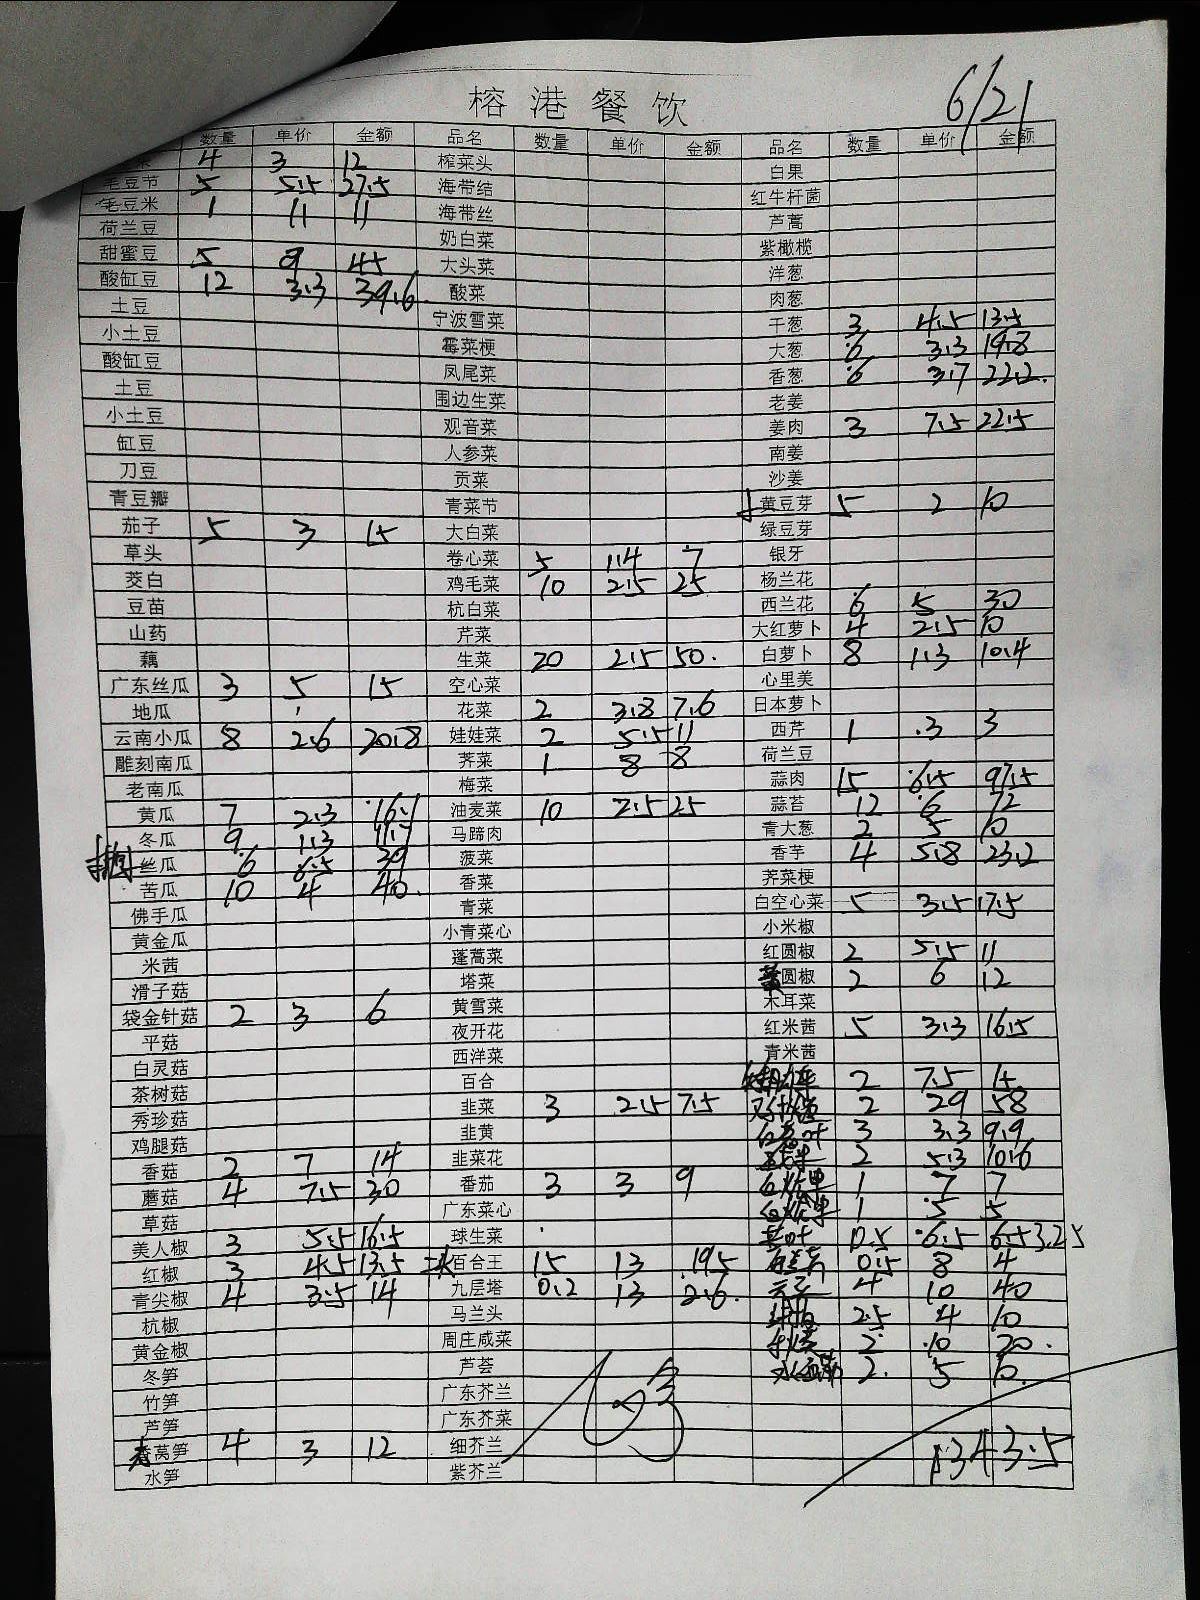 榕港餐饮
6/21
数量 单价 金额 品名 数量 单价 金额 品名 数量 单价 金额
4 3 12 榨菜头 白果
毛豆节 5 5.5 27.5 海带结 红牛杆菌
毛豆米 1 11 11 海带丝 芦蒿
荷兰豆 奶白菜 紫橄榄
甜蜜豆 5 9 45 大头菜 洋葱
酸缸豆 12 3.3 39.6 酸菜 肉葱
土豆 宁波雪菜 干葱 3 4.5 13.5
小土豆 霉菜梗 大葱 6 3.3 19.8
酸缸豆 凤尾菜 香葱 6 3.7 22.2
土豆 围边生菜 老姜
小土豆 观音菜 姜肉 3 7.5 22.5
缸豆 人参菜 南姜
刀豆 贡菜 沙姜
青豆瓣 青菜节 黄豆芽 5 2 10
茄子 5 3 15 大白菜 绿豆芽
草头 卷心菜 5 1.4 7 银牙
茭白 鸡毛菜 10 2.5 25 杨兰花
豆苗 杭白菜 西兰花 6 5 30
山药 芹菜 大红萝卜 4 2.5 10
藕 生菜 20 2.5 50 白萝卜 8 1.3 10.4
广东丝瓜 3 5 15 空心菜 心里美
地瓜 花菜 2 3.8 7.6 日本萝卜
云南小瓜 8 2.6 20.8 娃娃菜 2 5.5 11 西芹 1 3 3
雕刻南瓜 荠菜 1 8 8 荷兰豆
老南瓜 梅菜 蒜肉 15 6.5 97.5
黄瓜 7 2.3 16.1 油麦菜 10 2.5 25 蒜苔 12 6 72
冬瓜 9 1.3 11.7 马蹄肉 青大葱 2 5 10
丝瓜 6 6.5 39 菠菜 香芋 4 5.8 23.2
苦瓜 10 4 40 香菜 荠菜梗
佛手瓜 青菜 白空心菜 5 3.5 17.5
黄金瓜 小青菜心 小米椒
米茜 蓬蒿菜 红圆椒 2 5.5 11
滑子菇 塔菜 黄圆椒 2 6 12
袋金针菇 2 3 6 黄雪菜 木耳菜
平菇 夜开花 红米茜 5 3.3 16.5
白灵菇 西洋菜 青米茜
茶树菇 百合 2 7.5 15
秀珍菇 韭菜 3 2.5 7.5 2 29 58
鸡腿菇 韭黄 3 3.3 9.9
香菇 2 7 14 韭菜花 2 5.3 10.6
蘑菇 4 7.5 30 番茄 3 3 9 1 7 7
草菇 广东菜心 1 5 5
美人椒 3 5.5 16.5 球生菜 0.5 6.5 6.5 3.25
红椒 3 4.5 13.5 百合王 15 13 195 0.5 8 4
青尖椒 4 3.5 14 九层塔 0.2 13 2.6 4 10 40
杭椒 马兰头 2.5 4 10
黄金椒 周庄咸菜 2 10 20
冬笋 芦荟 2 5 10
竹笋 广东芥兰
芦笋 广东芥菜
莴笋 4 3 12 细芥兰 1343.5
水笋 紫芥兰